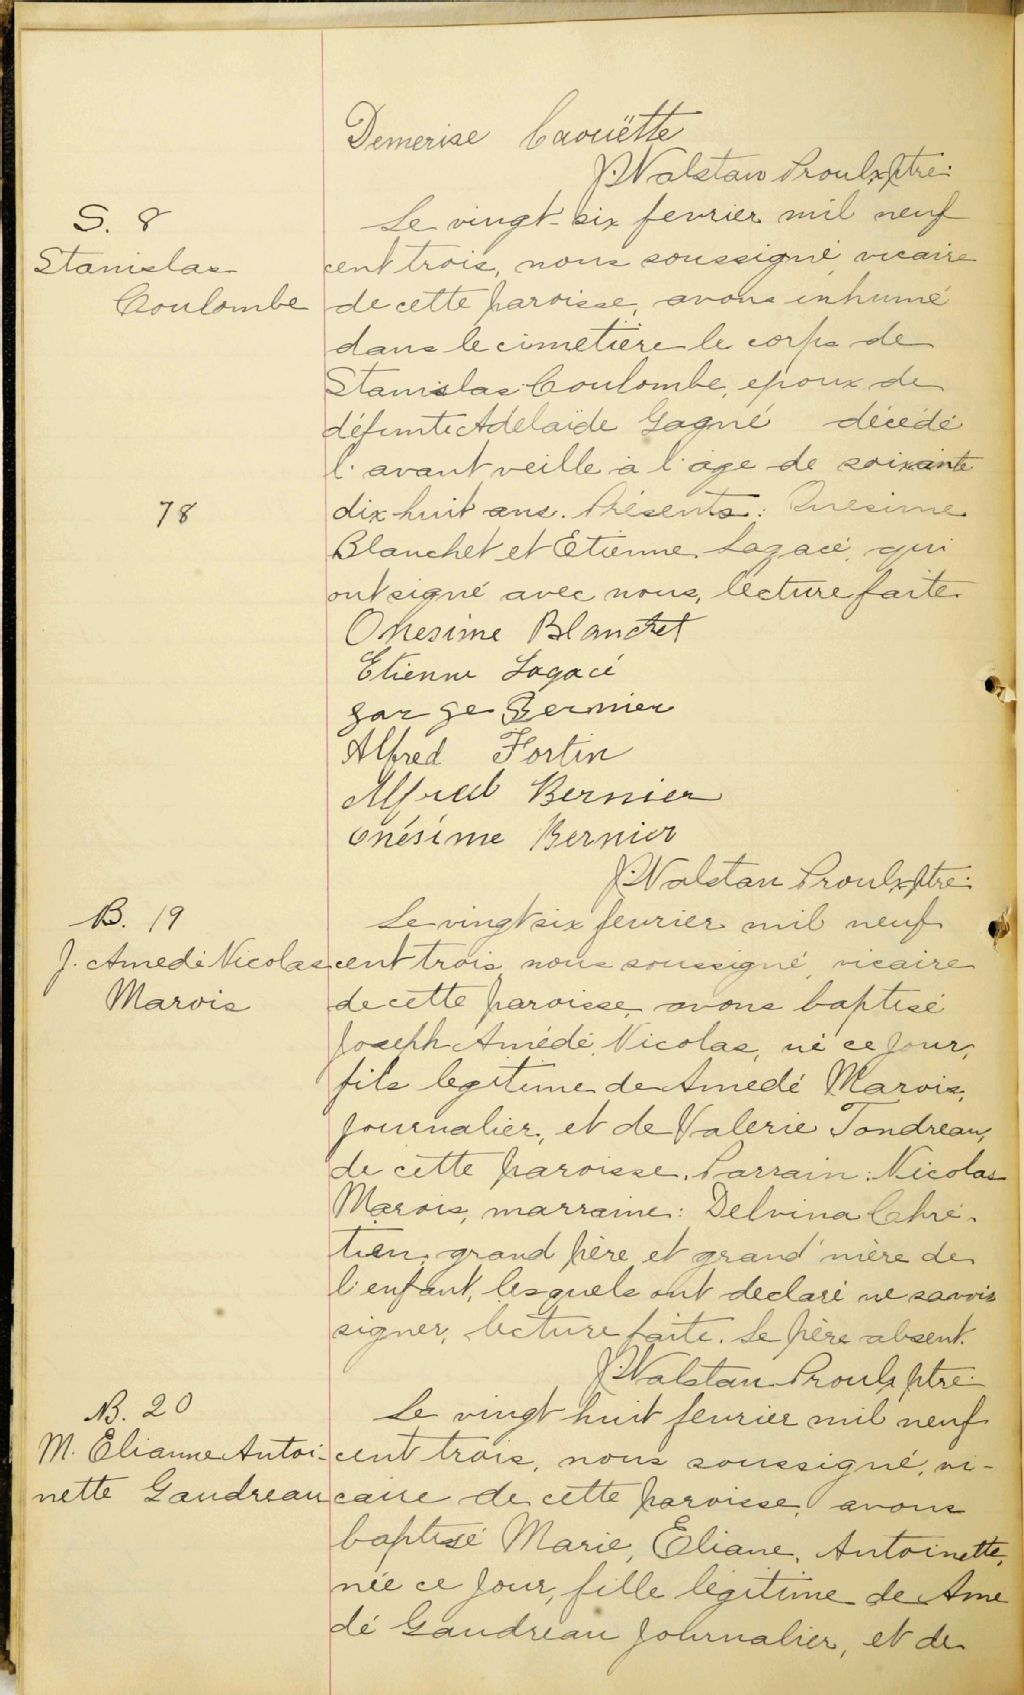 Demerise Caouëtte
J. Walstan Proulx, ptre.
S. 8
Stanislas
Coulombe
78
Le vingt-six fevrier mil neuf
cent trois, nous soussigné, vicaire
de cette paroisse, avons inhumé
dans le cimetière le corps de
Stanislas Coulombe, epoux de
défunte Adelaïde Gagné décédé
l'avant veille à l'âge de soixante
dix huit ans. Présents: Onesime
Blanchet et Etienne Lagacé, qui
ont signé avec nous, lecture faite
Onesime Blanchet
Etienne Lagacé
Gorge Bernier
Alfred Fortin
Alfred Bernier
Onésime Bernier
J. Walstan Proulx, ptre.
B. 19
J. Amedé Nicolas
Marois
Le vingt six fevrier mil neuf
cent trois, nous soussigné, vicaire
de cette paroisse, avons baptisé
Joseph Amédé, Nicolas, né ce jour,
fils legitime de Amedé Marois,
journalier, et de Valerie Tondreau,
de cette paroisse. Parrain: Nicolas
Marois, marraine: Delvina Chré-
tien, grand père et grand'mère de
l'enfant, lesquels ont declaré ne savoir
signer, lecture faite. Le père absent.
J. Walstan Proulx, ptre.
B. 20
M. Elianne Antoi-
nette Gaudreau
Le vingt huit fevrier mil neuf
cent trois, nous soussigné, vi-
caire de cette paroisse, avons
baptisé Marie, Eliane, Antoinette,
née ce jour, fille légitime de Ame
dé Gaudreau journalier, et de